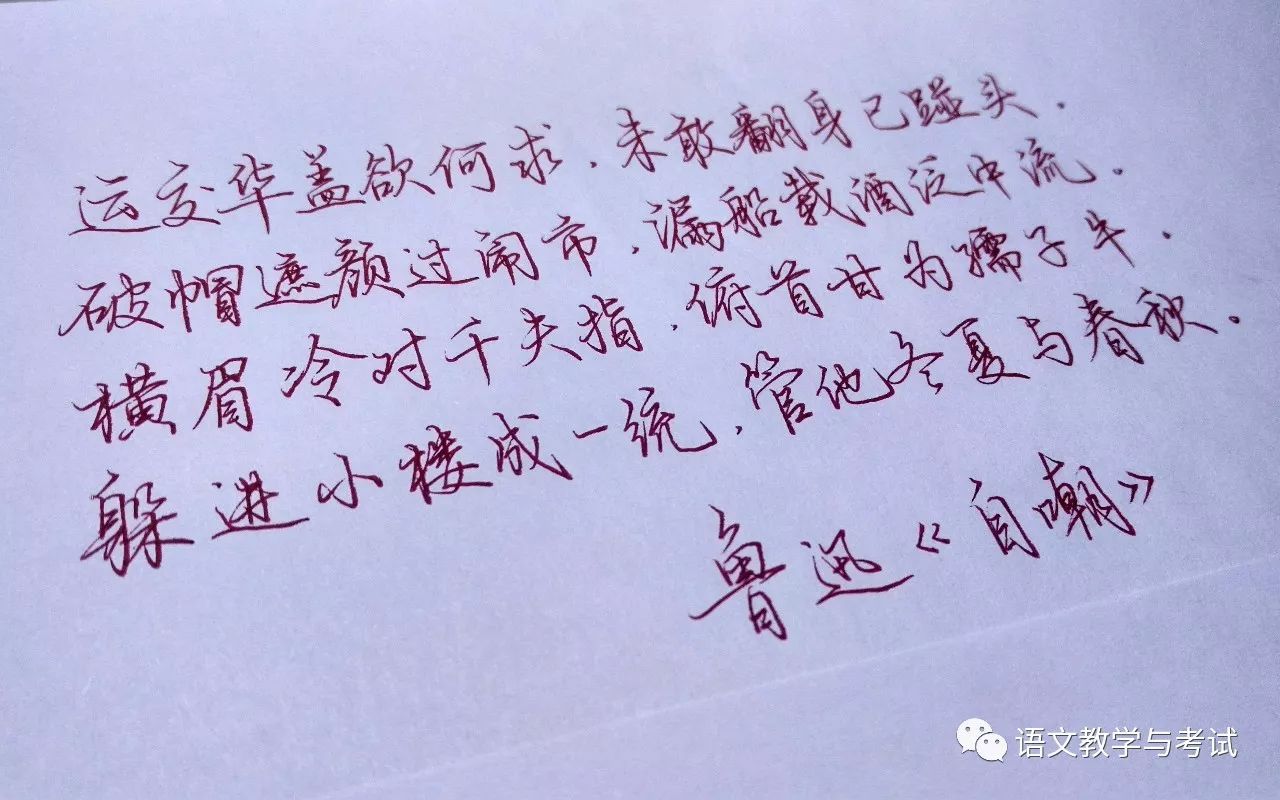 运交华盖欲何求.未敢翻身已碰头.
破帽遮颜过闹市,漏船载酒泛中流.
横眉冷对千夫指.俯首甘为孺子牛.
躲进小楼成一统,管他冬夏与春秋.
鲁迅《自嘲》
语文教学与考试